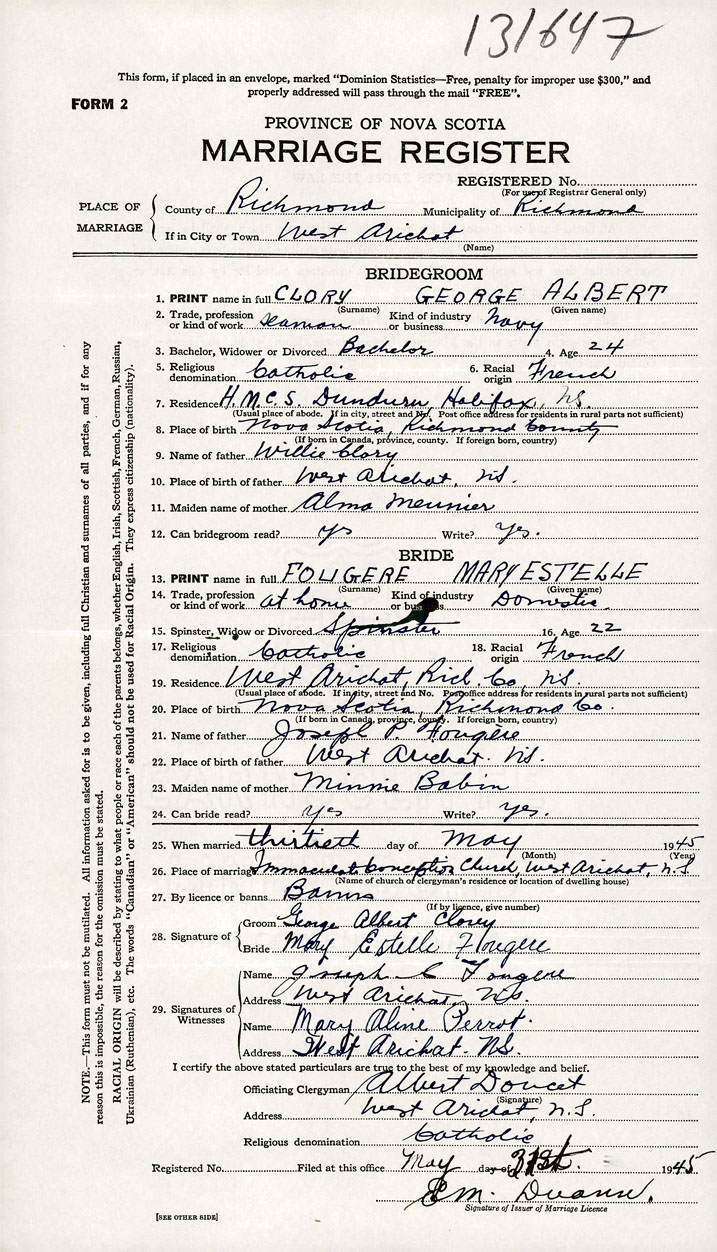 131647
This form, if placed in an envelope, marked "Dominion Statistics—Free, penalty for improper use $300," and
properly addressed will pass through the mail "FREE".
FORM 2
PROVINCE OF NOVA SCOTIA
MARRIAGE REGISTER
REGISTERED No.
(For use of Registrar General only)
PLACE OF MARRIAGE
County of Richmond Municipality of Richmond
If in City or Town West Arichat
(Name)
BRIDEGROOM
1. PRINT name in full CLORY GEORGE ALBERT
(Surname) (Given name)
2. Trade, profession or kind of work seaman Kind of industry or business Navy
3. Bachelor, Widower or Divorced Bachelor 4. Age 24
5. Religious denomination Catholic 6. Racial origin French
7. Residence H.M.C.S. Dundurn Halifax, NS.
(Usual place of abode. If in city, street and No. Post office address for residents in rural parts not sufficient)
8. Place of birth Nova Scotia, Richmond County
(If born in Canada, province, county. If foreign born, country)
9. Name of father Willie Clory
10. Place of birth of father West Arichat, NS.
11. Maiden name of mother Alma Meunier
12. Can bridegroom read? yes Write? yes.
BRIDE
13. PRINT name in full FOUGERE MARY ESTELLE
(Surname) (Given name)
14. Trade, profession or kind of work at home Kind of industry or business Domestic
15. Spinster, Widow or Divorced Spinster 16. Age 22
17. Religious denomination Catholic 18. Racial origin French
19. Residence West Arichat, Rich. Co, NS.
(Usual place of abode. If in city, street and No. Post office address for residents in rural parts not sufficient)
20. Place of birth Nova Scotia, Richmond Co.
(If born in Canada, province, county. If foreign born, country)
21. Name of father Joseph P. Fougère
22. Place of birth of father West Arichat. NS.
23. Maiden name of mother Minnie Babin
24. Can bride read? yes Write? yes.
25. When married thirtieth day of May 1945
(Month) (Year)
26. Place of marriage Immaculate Conception Church, West Arichat, N.S.
(Name of church of clergyman's residence or location of dwelling house)
27. By licence or banns Banns
(If by licence, give number)
28. Signature of
Groom George Albert Clory
Bride Mary Estelle Fougere
29. Signatures of Witnesses
Name Joseph C Fougere
Address West Arichat, NS.
Name Mary Aline Perrot.
Address West Arichat. NS.
I certify the above stated particulars are true to the best of my knowledge and belief.
Officiating Clergyman Albert Doucet
(Signature)
Address West Arichat, N.S.
Religious denomination Catholic
Registered No. Filed at this office May day of 31st. 1945
Signature of Issuer of Marriage Licence
[SEE OTHER SIDE]
NOTE.—This form must not be mutilated. All information asked for is to be given, including full Christian and surnames of all parties, and if for any
reason this is impossible, the reason for the omission must be stated.
RACIAL ORIGIN will be described by stating to what people or race each of the parents belongs, whether English, Irish, Scottish, French, German, Russian,
Ukrainian (Ruthenian), etc. The words "Canadian" or "American" should not be used for Racial Origin. They express citizenship (nationality).